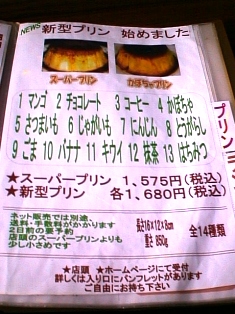 NEWS
新型プリン 始めました
スーパープリン かぼちゃプリン
1 マンゴ 2 チョコレート 3 コーヒー 4 かぼちゃ
5 さつまいも 6 じゃがいも 7 にんじん 8 とうがらし
9 ごま 10 バナナ 11 キウイ 12 抹茶 13 はちみつ
★スーパープリン 1,575円(税込)
★新型プリン 各1,680円(税込)
ネット販売では別途、
送料・手数料がかかります
2日前の要予約
店頭のスーパープリンよりも
少し小さめです
長さ16×12×8cm
重さ 850g
全14種類
★店頭 ★ホームページにて受付
詳しくは入り口にパンフレットがあります
ご自由にお持ち下さい
プリン